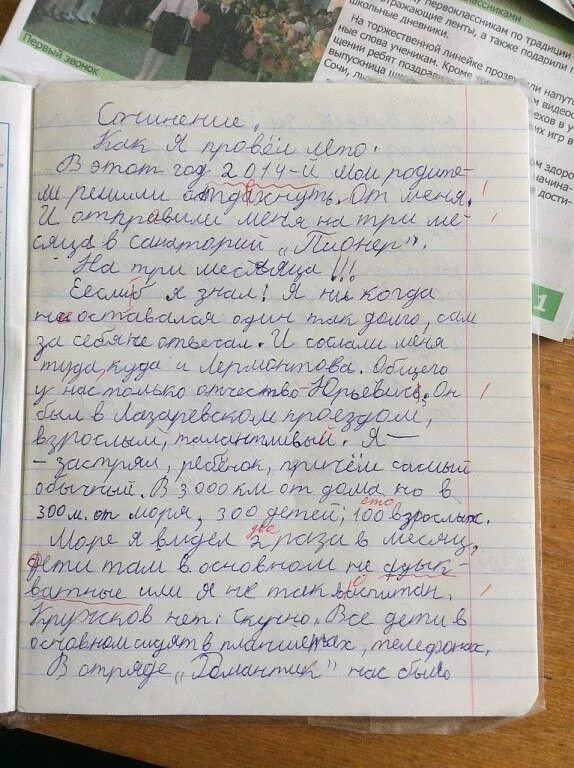 первоклассникам по традиции
отражающие ленты, а также подарили
школьные дневники.
На торжественной линейке прозвучали напут
ные слова ученикам. Кроме
щении ребят поздравила
выпускница
Сочи,
Первый звонок
1
Сочинение.
Как я провёл лето.
В этот год 2014-й мои родите-
ли решили отдохнуть. От меня.
И отправили меня на три ме-
сяца в санаторий „Пионер".
На три месяца!!!
Еслиб я знал! Я ни когда
не оставался один так долго, сам
за себя не отвечал. И сослали меня
туда, куда и Лермонтова. Общего
у нас только отчество - Юрьевич. Он
был в Лазаревском проездом,
взрослый, талантливый. Я —
- застрял, ребёнок, причём самый
обычный. В 3000 км от дома но в
300 м. от моря, 300 детей, 100 взрослых.
сто
Море я видел 2 раза в месяц,
два
дети там в основном не адык-
ватные или я не так воспитан.
Кружков нет. Скучно. Все дети в
основном сидят в планшетах, телефонах.
В отряде „Романтик" нас было